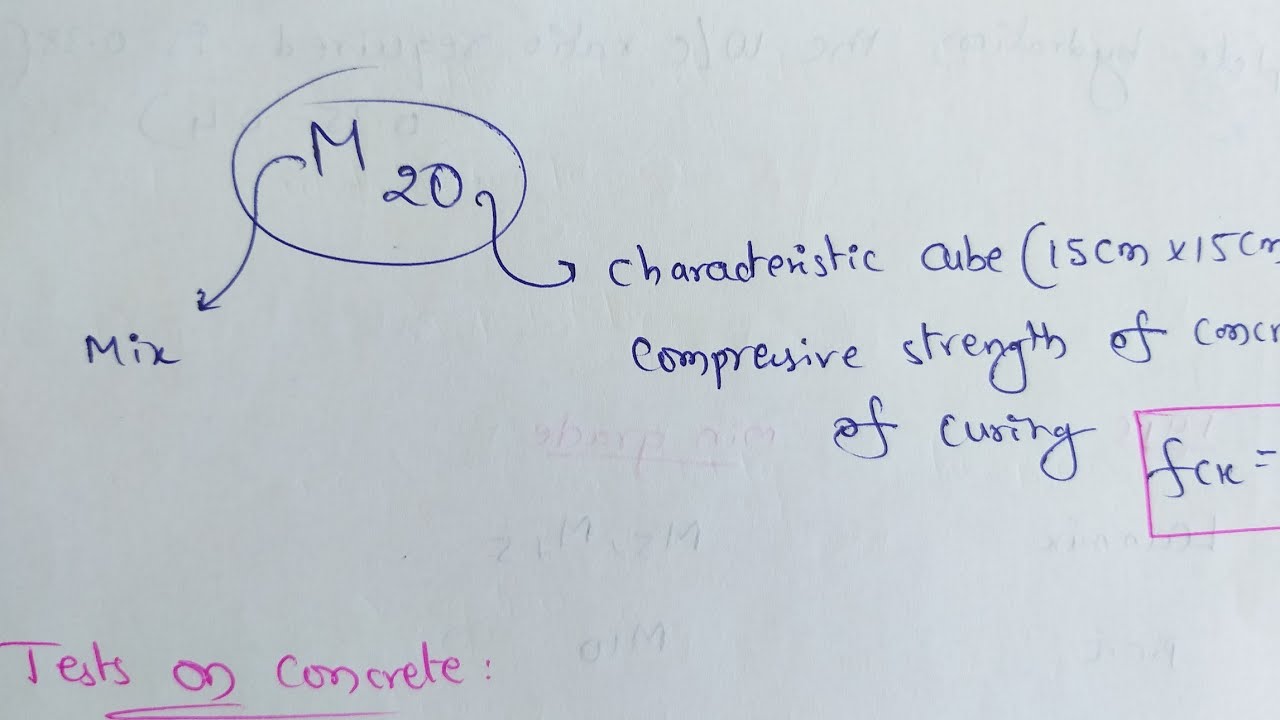 M20
characteristic cube (15cm x15cm
Mix
compressive strength of concr
of curing
fck =
Tests on concrete: